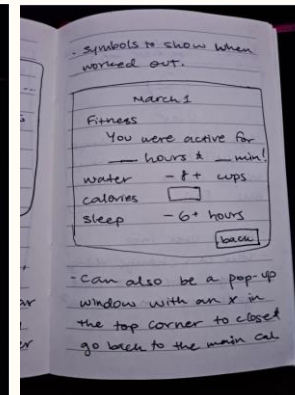 - symbols to show when
worked out.
March 1
Fitness
You were active for
__ hours & __ min!
water - 8+ cups
calories
sleep - 6+ hours
back
- can also be a pop-up
window with an x in
the top corner to close &
go back to the main cal